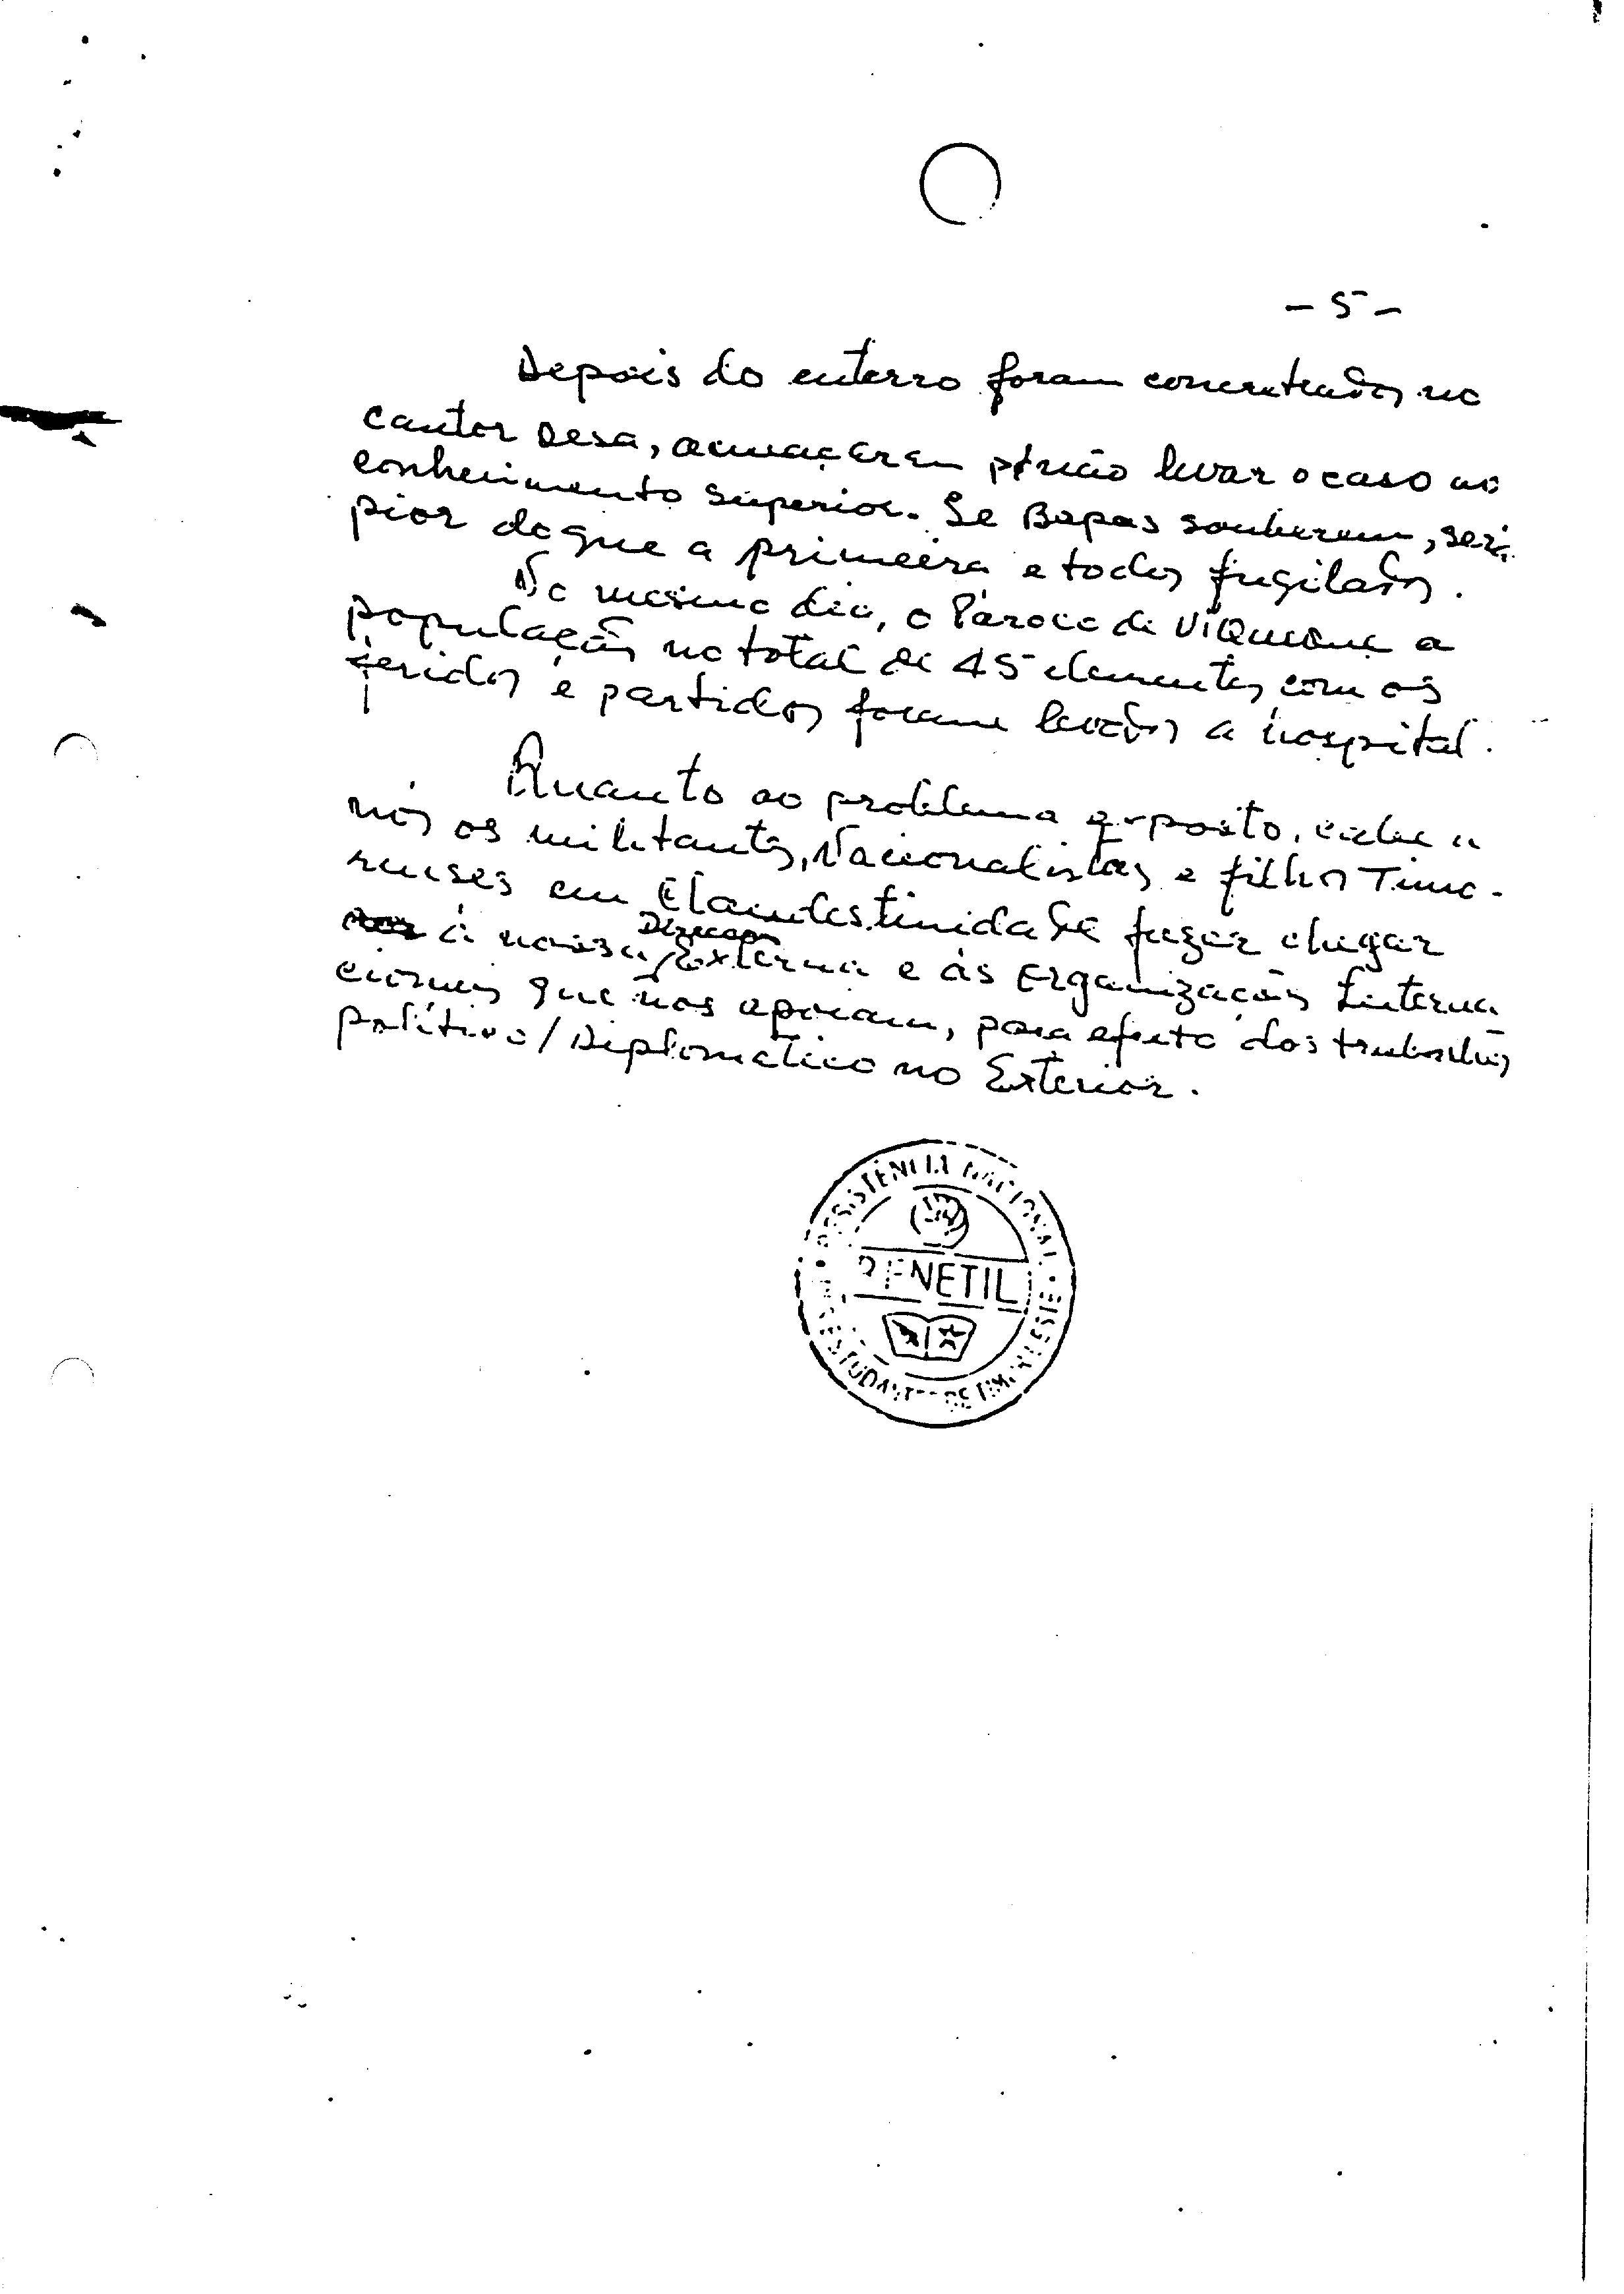 - 5 -
Depois do enterro foram concentrados no
cantor Desa, ameaçaram p/não levar o caso ao
conhecimento superior. Se Bapas souberem, será
pior do que a primeira e todos fuzilados.
No mesmo dia, o Pároco de Viqueque a
população no total de 45 elementos com os
feridos e partidos foram levados a hospital.
Quanto ao problema exposto, cabe a
nós os militantes, Nacionalistas e filhos Timo-
renses em Clandestinidade fazer chegar
à nossa Direcção Externa e às Organizações Interna
cionais que nos apoiam, para efeito dos trabalhos
político/Diplomático no Exterior.
RESISTÊNCIA NACIONAL
RENETIL
ESTUDANTES DE TIMOR LESTE